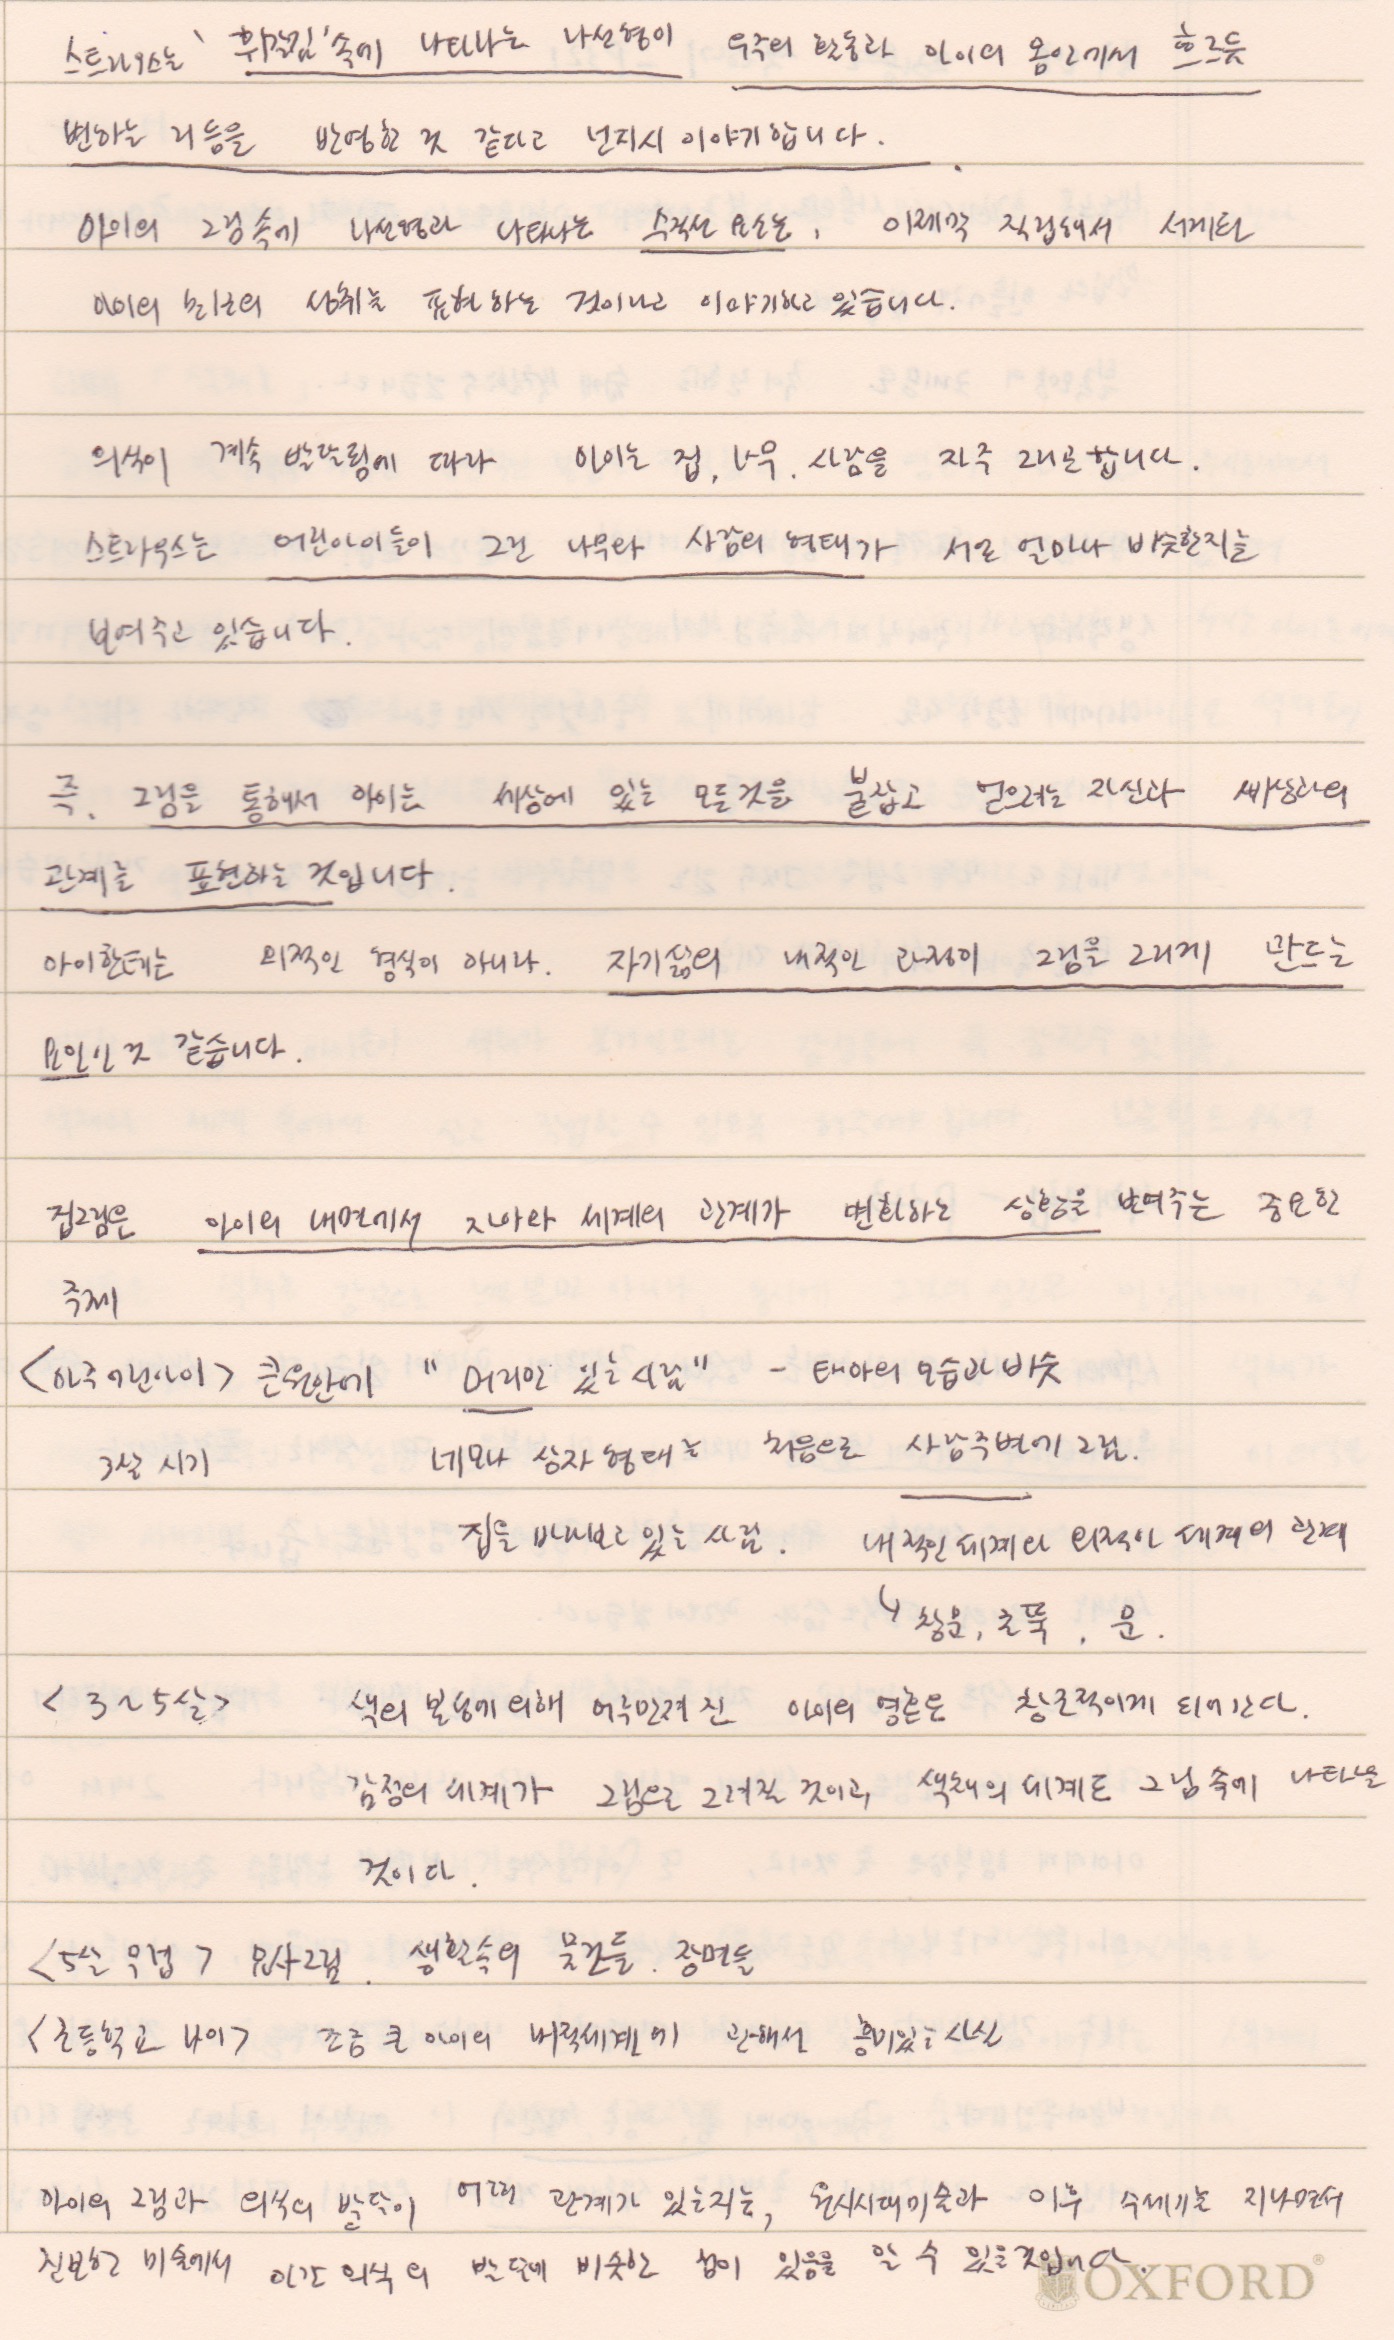 스트라우스는 '휘갈김' 속에 나타나는 나선형이 우주의 활동과 아이의 몸안에서 흐르듯
변하는 리듬을 반영한 것 같다고 넌지시 이야기합니다.
아이의 그림속에 나선형과 나타나는 수직선 요소는, 이제막 직립해서 서게된
아이의 성취를 표현하는 것이라고 이야기하고 있습니다.
의식이 계속 발달됨에 따라 아이는 집, 나무, 사람을 자주 그리곤 합니다.
스트라우스는 어린아이들이 그린 나무와 사람의 형태가 서로 얼마나 비슷한지를
보여주고 있습니다.
즉, 그림을 통해서 아이는 세상에 있는 모든것을 붙잡고 얻으려는 자신과 세상과의
관계를 표현하는 것입니다.
아이한테는 외적인 형식이 아니라, 자기삶의 내적인 과정이 그림을 그리게 만드는
요인인 것 같습니다.
집그림은 아이의 내면에서 자아와 세계의 관계가 변화하는 상황을 보여주는 중요한
주제
<아주어린아이> 큰원안에 "머리만 있는 사람" - 태아의 모습과 비슷
3살 시기 네모나 상자 형태를 처음으로 사람주변에 그림.
집을 바라보고 있는 사람. 내적인 세계와 외적인 세계의 관계
↳ 창문, 굴뚝, 문.
<3~5살> 색의 본성에 의해 어루만져진 아이의 영혼은 창조적이게 되어간다.
감정의 세계가 그림으로 그려질 것이고, 색채의 세계도 그림 속에 나타날
것이다.
<5살 무렵> 묘사그림. 생활속의 물건들. 장면들
<초등학교 나이> 조금 큰 아이의 내적세계에 관해서 흥미있는 사실
아이의 그림과 의식의 발달이 어떤 관계가 있는지는, 원시시대미술과 이후 수세기를 지나면서
진보한 미술에서 인간 의식의 발달에 비슷한 점이 있음을 알 수 있는 것입니다.
OXFORD®